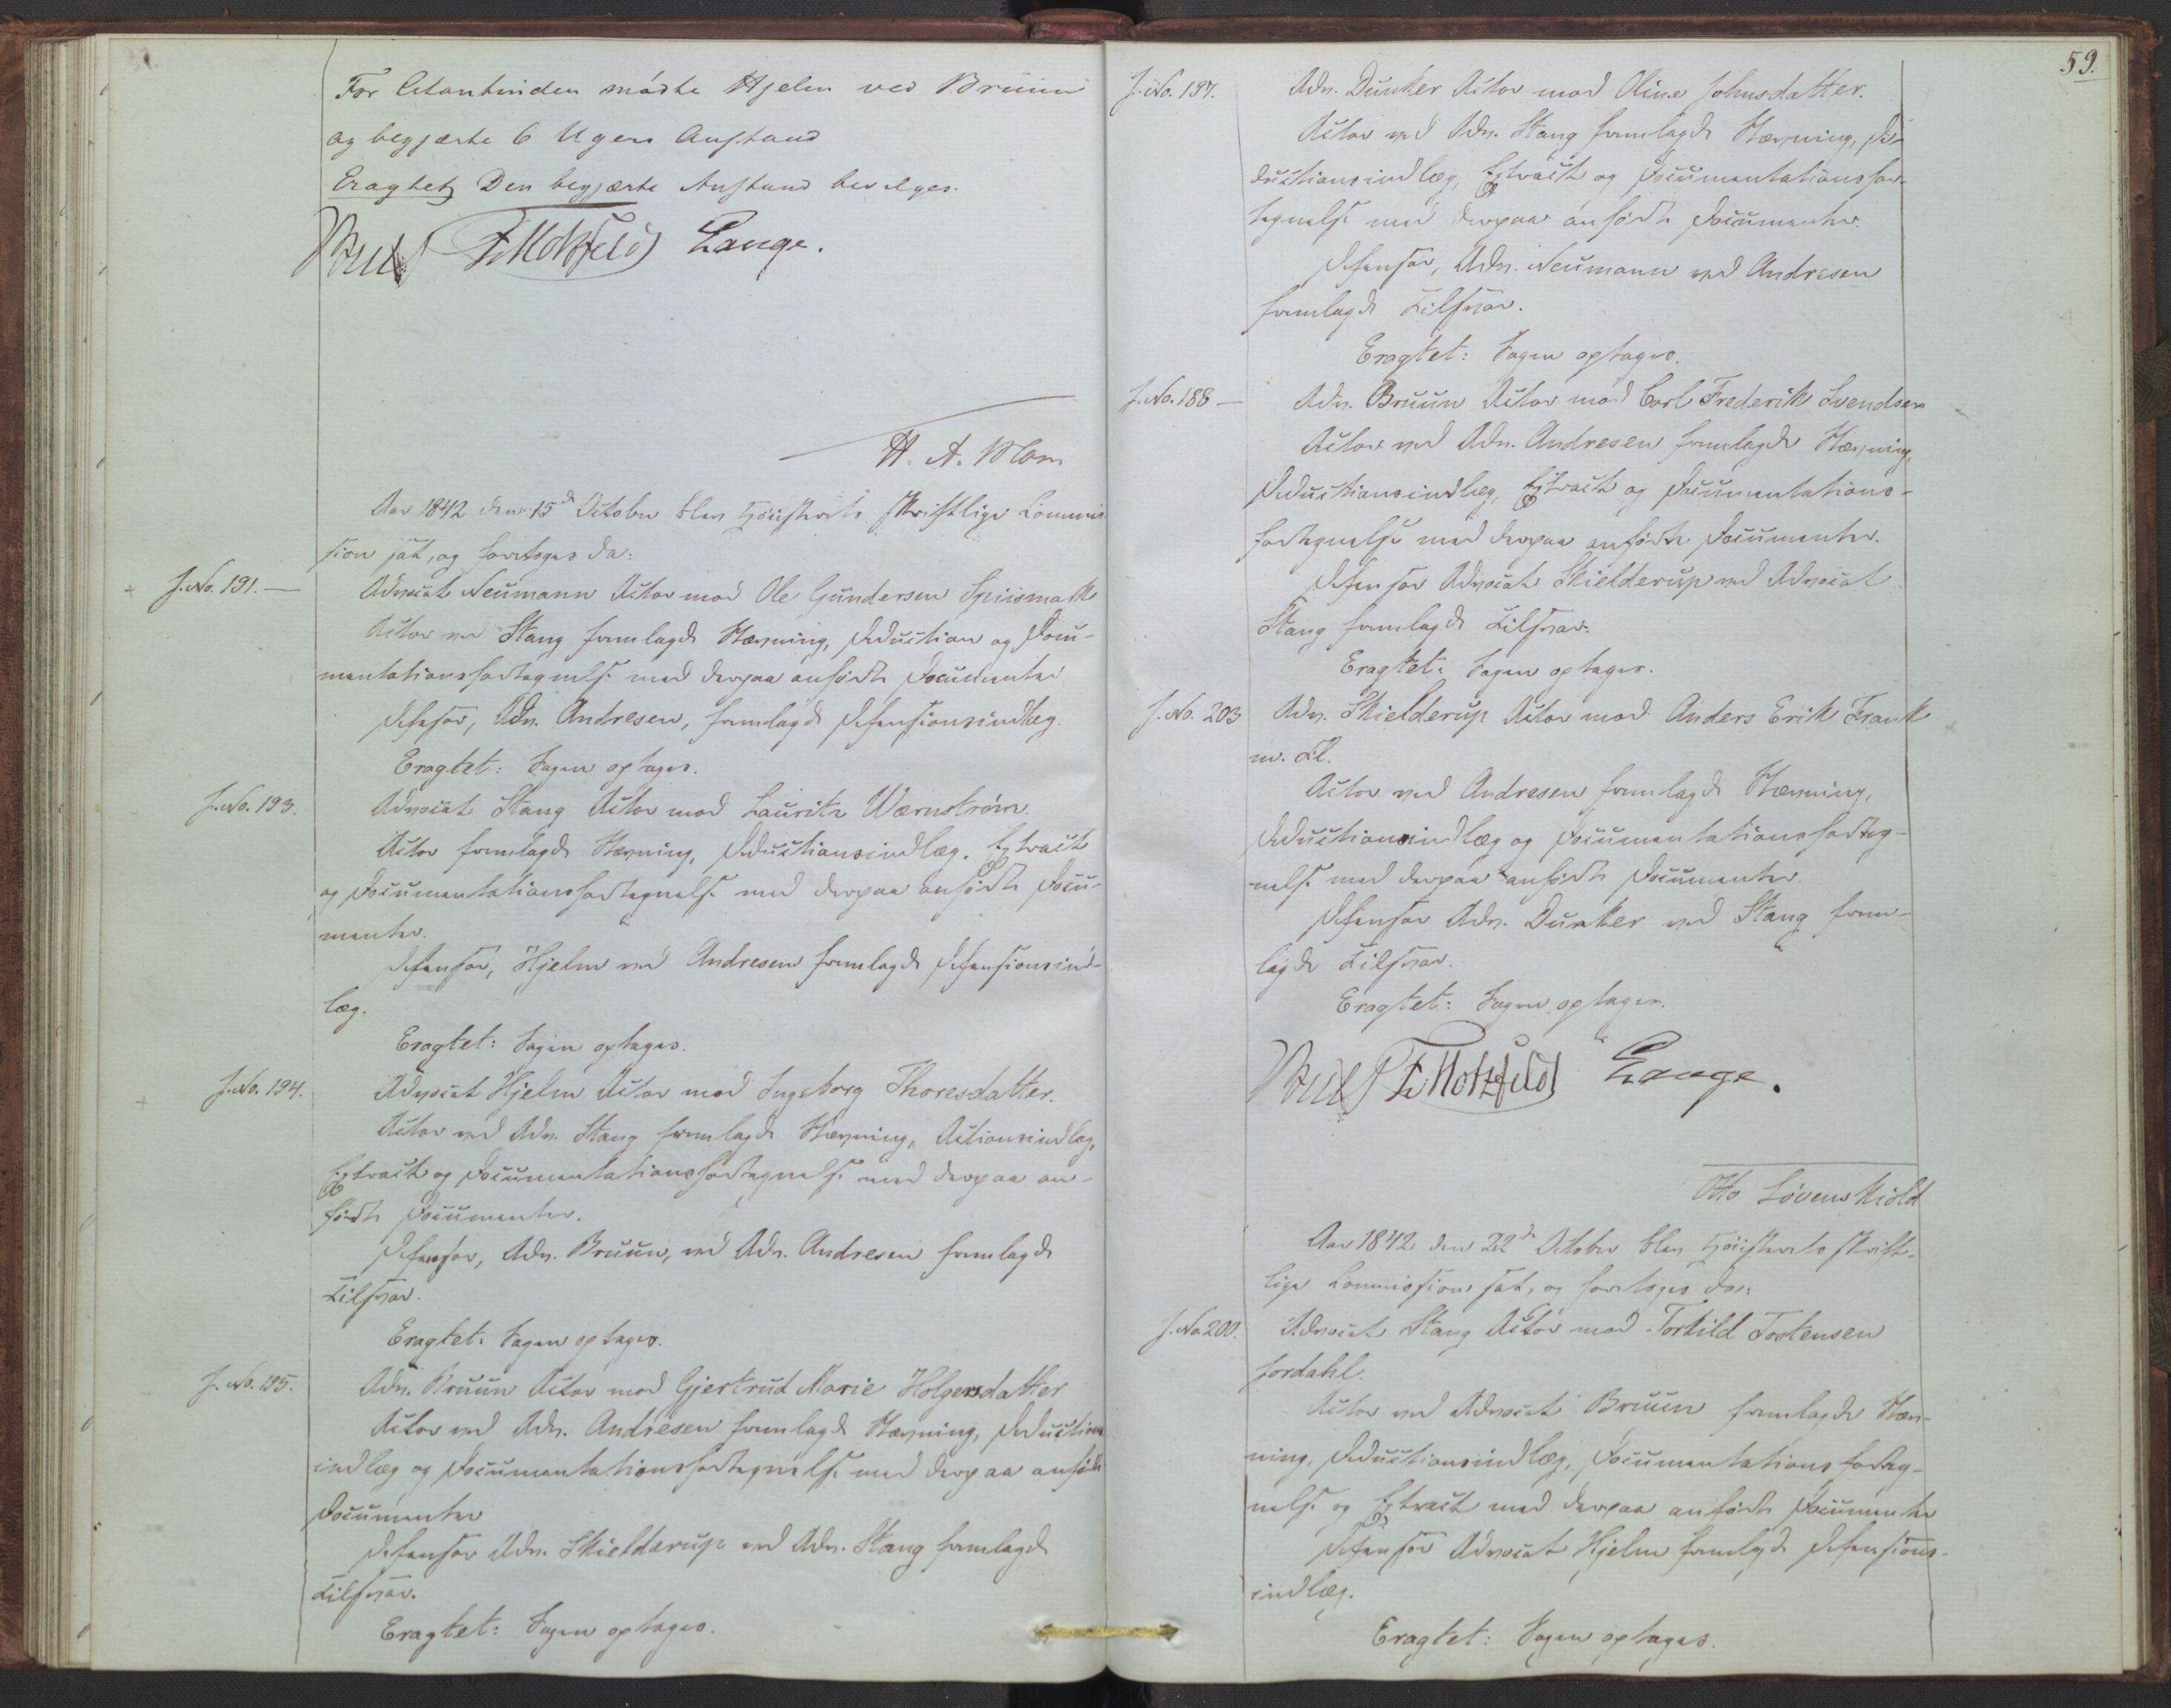 For Citantinden mødte Hjelm ved Bruun
og begjærte 6 Ugers Anstand
Eragtet Den begjærte Anstand bevilges.
Motzfeldt Lange.
Aar 1842 den 15de October blev Høiesterets skriftlige Commis
sion sat, og foretoges da:
J. No. 191.
Advocat Neumann Actor mod Ole Gundersen Spiismark
Actor ved Stang fremlagde Stævning, Deduction og Docu-
mentationsfortegnelse med derpaa anførte Documenter
Defensor, Adv. Andresen, fremlagde Defensionsindlæg.
Eragtet: Sagen optages.
J. No. 193.
Advocat Stang Actor mod Lauritz Wærnstrøm.
Actor fremlagde Stævning, Deductionsindlæg, Extract
og Documentationsfortegnelse med derpaa anførte Docu-
menter.
Defensor, Hjelm ved Andresen fremlagde Defensionsind-
læg.
Eragtet: Sagen optages.
J. No. 194.
Advocat Hjelm Actor mod Ingeborg Thoresdatter.
Actor ved Adv. Stang fremlagde Stævning, Actionsindlæg,
Extract og Documentationsfortegnelse med derpaa an-
førte Documenter.
Defensor, Adv. Bruun, ved Adv. Andresen fremlagde
Tilsvar.
Eragtet: Sagen optages.
J. No. 195.
Adv. Bruun Actor mod Gjertrud Marie Holgersdatter
Actor ved Adv. Andresen fremlagde Stævning, Deductions
indlæg og Documentationsfortegnelse med derpaa anførte
Documenter
Defensor Adv. Skielderup ved Adv. Stang fremlagde
Tilsvar.
Eragtet: Sagen optages.
59.
J. No. 197.
Adv. Dunker Actor mod Oline Johnsdatter.
Actor ved Adv. Stang fremlagde Stævning, De-
ductionsindlæg, Extract og Documentationsfor-
tegnelse med derpaa anførte Documenter.
Defensor, Adv. Neumann ved Andresen
fremlagde Tilsvar.
Eragtet: Sagen optages.
J. No. 188 —
Adv. Bruun Actor mod Carl Frederik Svendsen
Actor ved Adv. Andresen fremlagde Stævning,
Deductionsindlæg, Extract og Documentations-
fortegnelse med derpaa anførte Documenter.
Defensor Advocat Skielderup ved Advocat
Stang fremlagde Tilsvar.
Eragtet: Sagen optages.
J. No. 203
Adv. Skielderup Actor mod Anders Erik Frank
m. Fl.
Actor ved Andresen fremlagde Stævning,
Deductionsindlæg og Documentationsforteg-
nelse med derpaa anførte Documenter.
Defensor Adv. Dunker ved Stang frem-
lagde Tilsvar.
Eragtet: Sagen optages.
Motzfeldt Lange.
Otto Løvenskiold
Aar 1842 den 22de October blev Høiesterets skrift-
lige Commission sat, og foretoges da:
J. No 200.
Advocat Stang Actor mod Torkild Torkensen
Fordahl.
Actor ved Advocat Bruun fremlagde Stæv-
ning, Deductionsindlæg, Documentationsforteg-
nelse og Extract med derpaa anførte Documenter
Defensor Advocat Hjelm fremlagde Defensions-
indlæg.
Eragtet: Sagen optages.